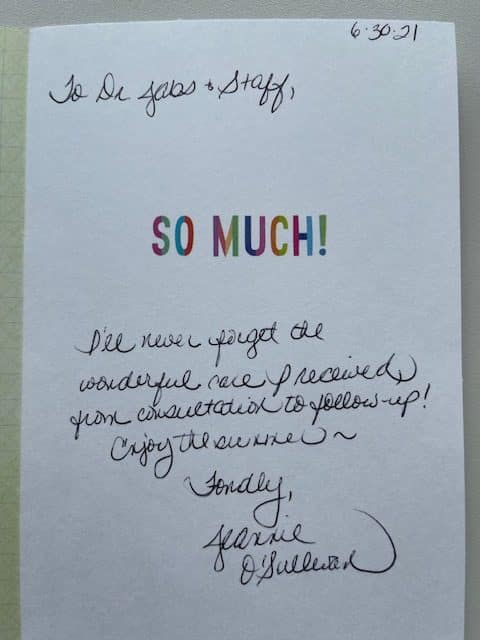 6·30·21
To Dr Jabs & Staff,
SO MUCH!
I'll never forget the
wonderful care I received,
from consultation to follow-up!
Enjoy the summer ~
Fondly,
Jeannie
O'Sullivan